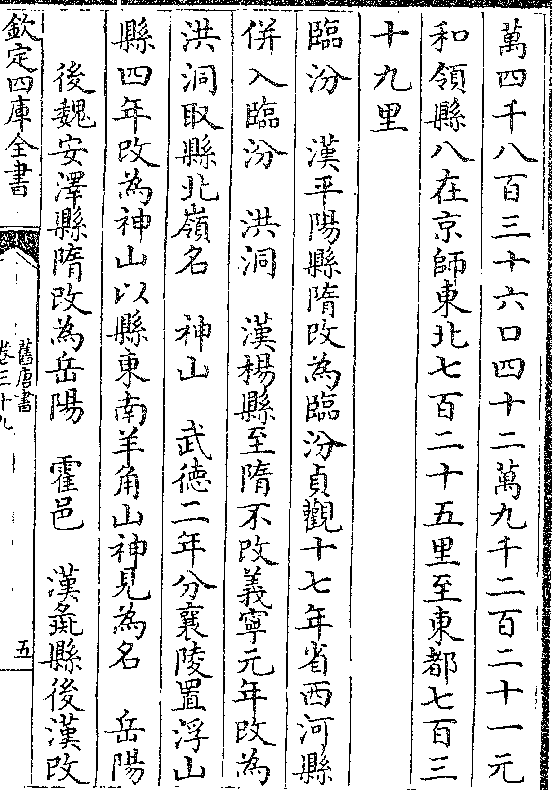 萬四千八百三十六口四十二萬九千二百二十一元
和領縣八在京師東北七百二十五里至東都七百三
十九里
臨汾　漢平陽縣隋改為臨汾貞觀十七年省西河縣
併入臨汾　洪洞　漢楊縣至隋不改義寧元年改為
洪洞取縣北嶺名　神山　武德二年分襄陵置浮山
縣四年改為神山以縣東南羊角山神見為名　岳陽
後魏安澤縣隋改為岳陽　霍邑　漢彘縣後漢改
欽定四庫全書
舊唐書
卷三十九
五